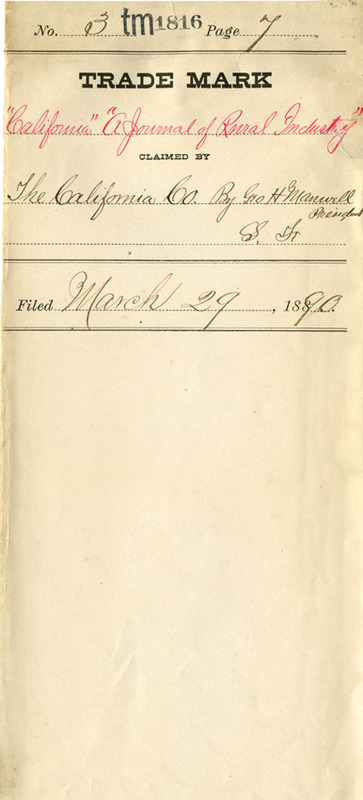 No. 3 tm1816 Page 7
TRADE MARK
"California" "A Journal of Rural Industry"
CLAIMED BY
The California Co. By Geo H Maxwell
President
S. F.
Filed March 29, 1890.